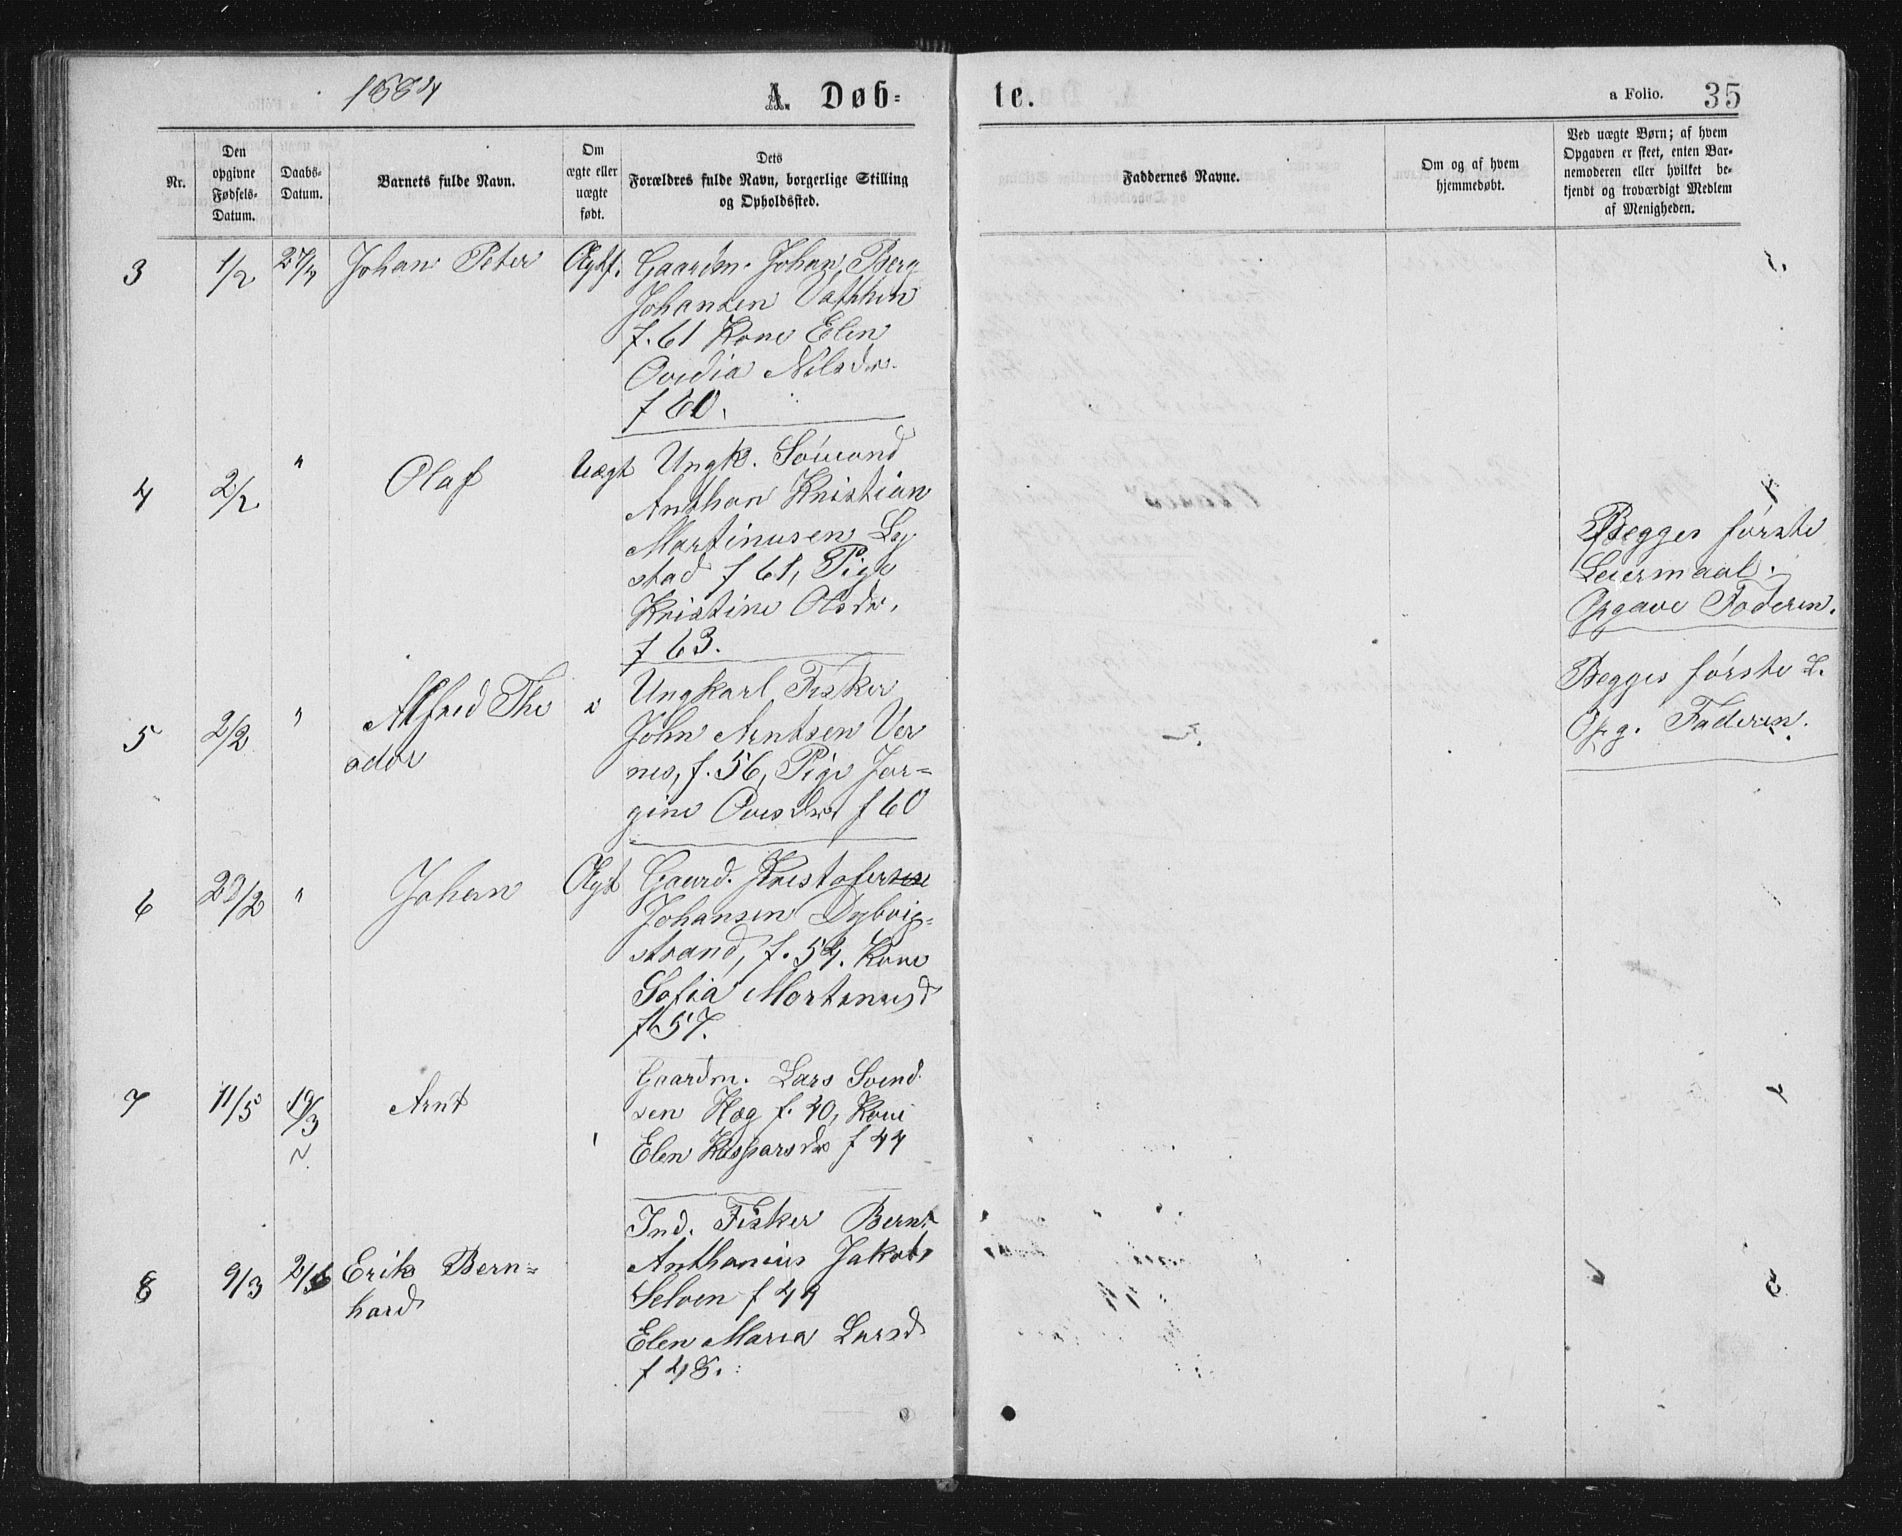 1884
A. Døb=
te.
a Folio. 35
Nr.
Den
opgivne
Fødsels-
Datum.
Daabs-
Datum.
Barnets fulde Navn.
Om
ægte eller
uægte
født.
Dets
Forældres fulde Navn, borgerlige Stilling
og Opholdssted.
Faddernes Navne.
Om og af hvem
hjemmedøbt.
Ved uægte Børn; af hvem
Opgaven er skeet, enten Bar-
nemoderen eller hvilket be-
kjendt og troværdigt Medlem
af Menigheden.
3 1/2 27/2 Johan Peter Ægtf. Gaardm. Johan Berg
Johansen
f. 61 Kone Elen
Ovedia Nilsdr.
f 60.
4 2/2 " Olaf Uægt Ungk. Sømand
Anthon Kristian
Martinusen Ley
stad f 61, Pige
Kristine Olsdr.
f 63.
Begges første
Leiermaal.
Opgave Faderen.
5 2/2 " Alfred The
odor
Ungkarl Fisker
John Arntsen Ver
nes, f. 56, Pige Jør=
gine Ovesdr. f 60
Begges første L.
Opg. Faderen.
6 " Johan Ægt Gaard. Kristofersen
Johansen Dybvig=
strand, f. 54. Kone
Sofia Mortensd
f 57.
7 11/5 Arnt Gaardm. Lars Svend
sen Hæg f. 40, Kone
Elen Kasparsdr f 44
8 9/3 Erik Bern=
hard
Ind. Fisker Bernt
Anthonius Jakobs
Selven f 49
Elen Maria Larsd
f 48.